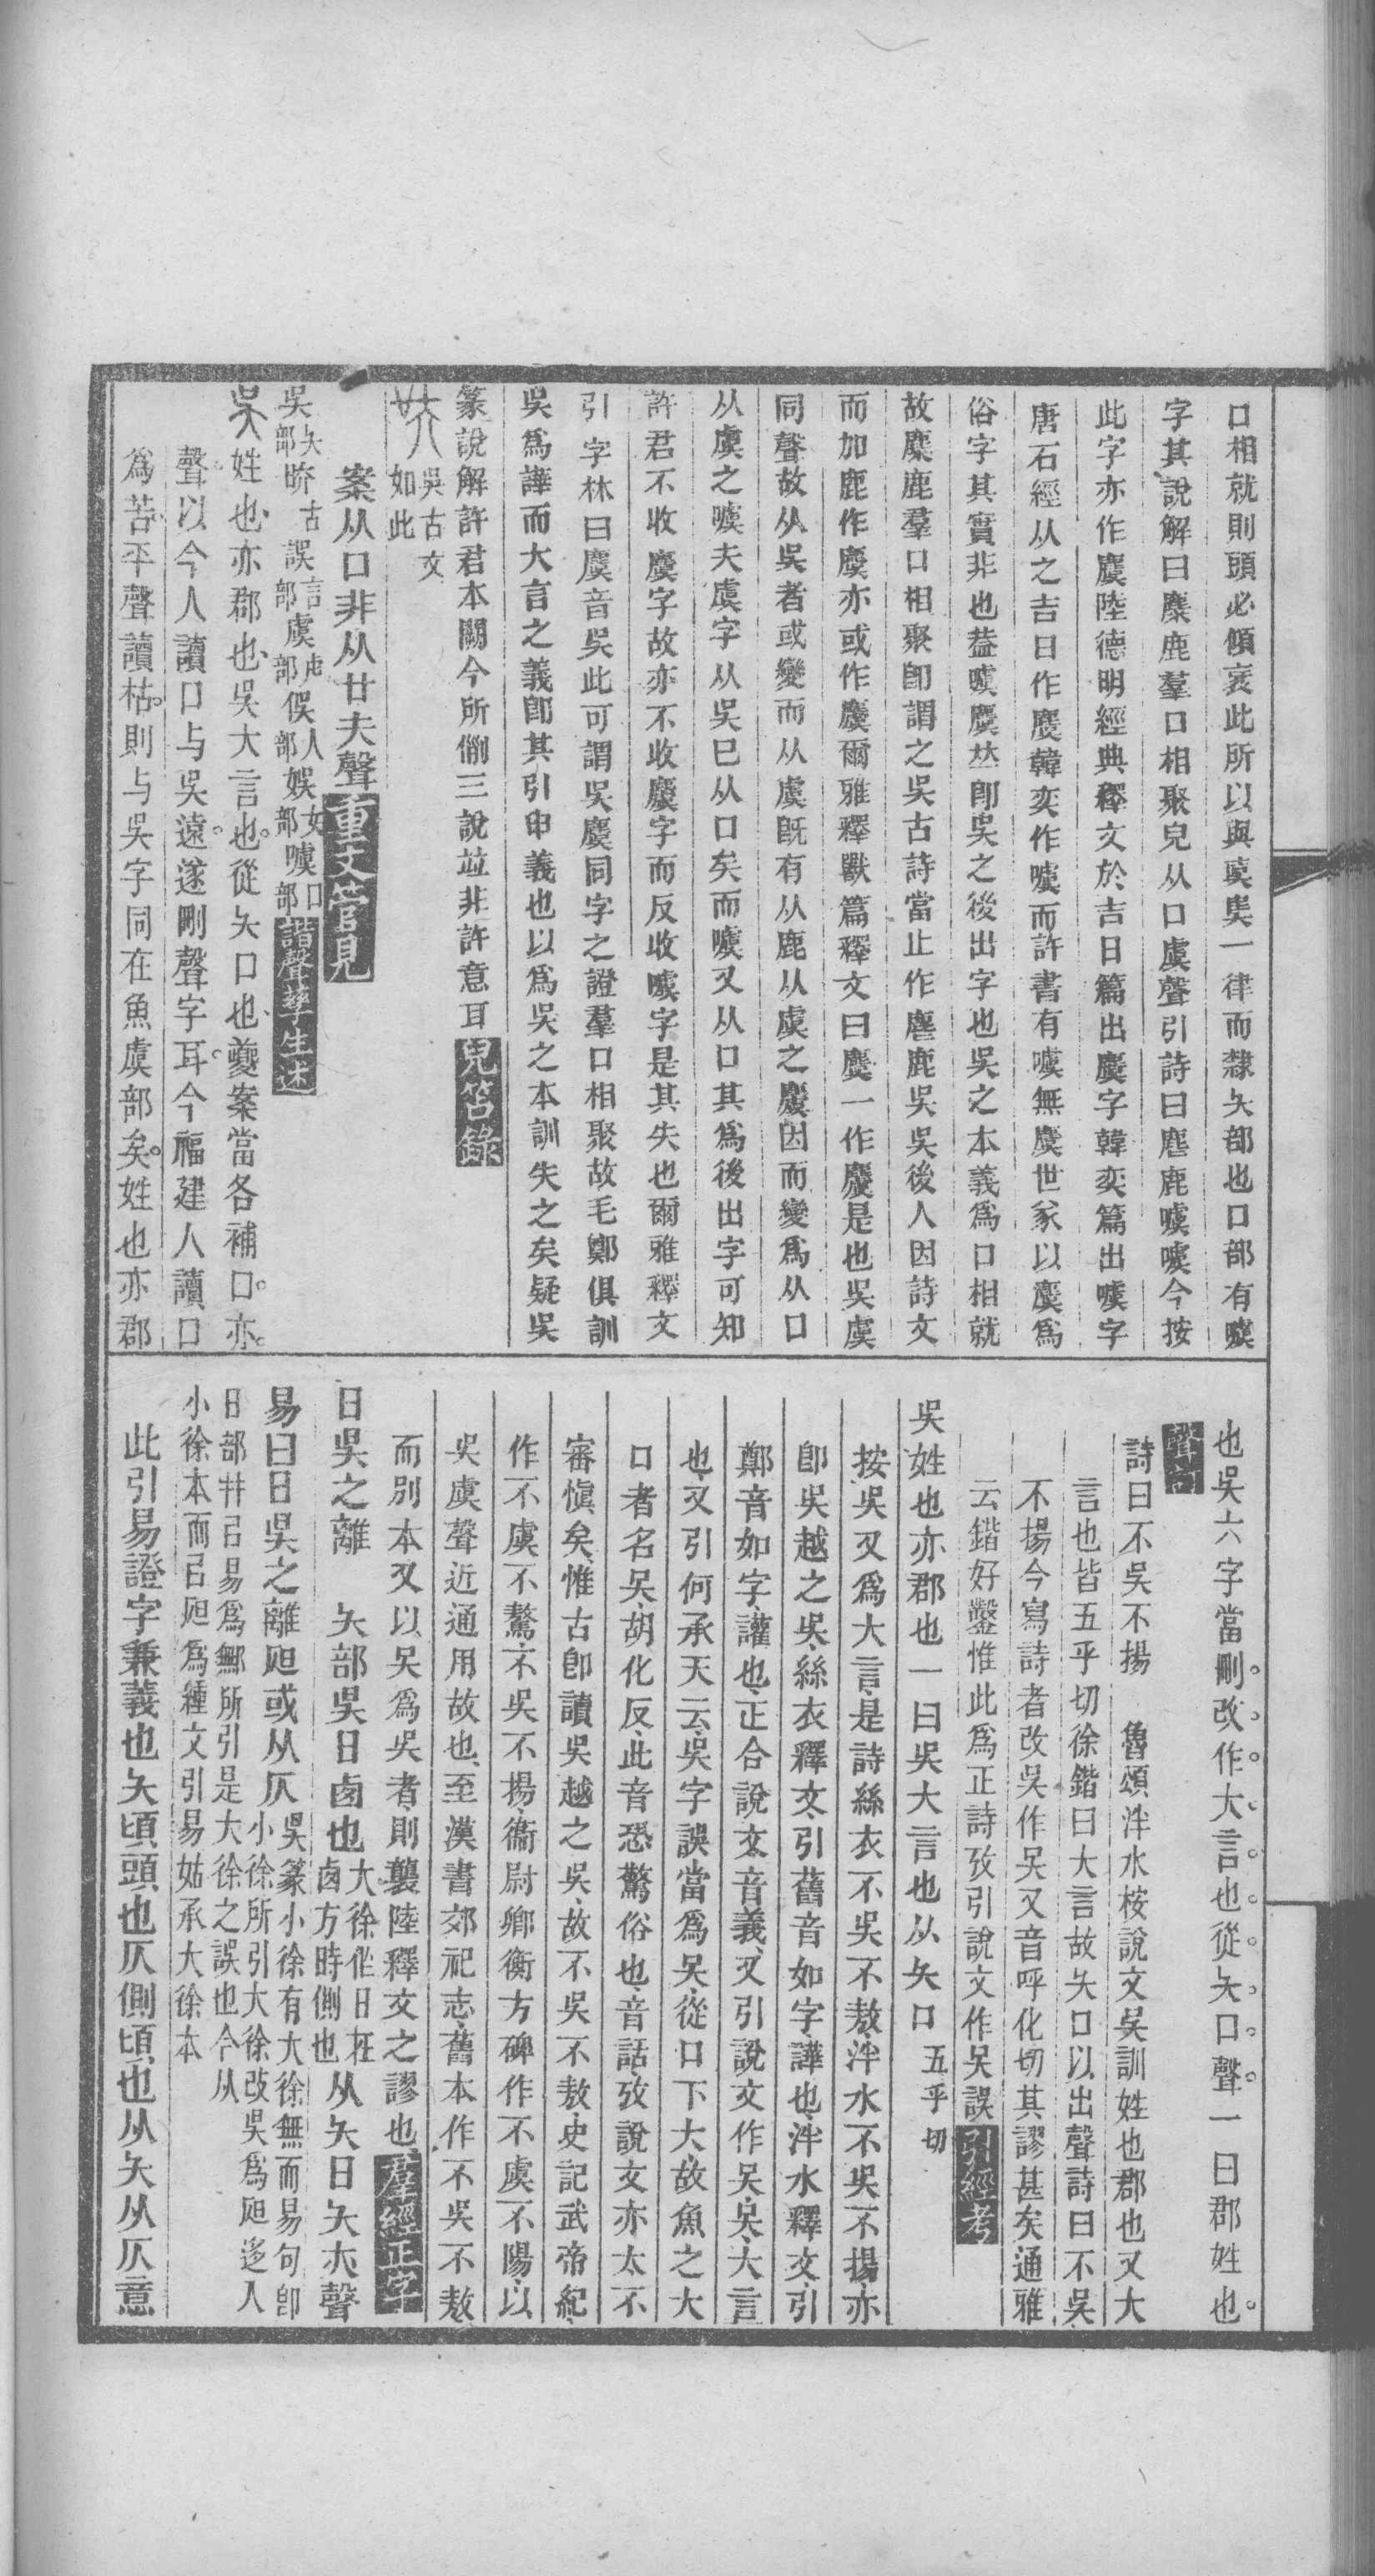 口相就則頭必傾衺此所以與奊㚔一律而隸夨部也口部有噳
字其說解曰麋鹿羣口相聚皃从口虞聲引詩曰麀鹿噳噳今按
此字亦作麌陸德明經典釋文於吉日篇出麌字韓奕篇出噳字
唐石經从之吉日作麌韓奕作噳而許書有噳無麌世豕以麌爲
俗字其實非也葢噳麌竝卽吳之後出字也吳之本義爲口相就
故麋鹿羣口相聚卽謂之吳古詩當止作麀鹿吳吳後人因詩文
而加鹿作麌亦或作麌爾雅釋獸篇釋文曰麌一作麌是也吳虞
同聲故从吳者或變而从虞旣有从鹿从虞之麌因而變爲从口
从虞之噳夫虞字从吳已从口矣而噳又从口其爲後出字可知
許君不收麌字故亦不收麌字而反收噳字是其失也爾雅釋文
引字林曰麌音吳此可謂吳麌同字之證羣口相聚故毛鄭俱訓
吳爲譁而大言之義卽其引申義也以爲吳之本訓失之矣疑吳
篆說解許君本闕今所傳三說竝非許意耳兒笘錄
吳古文如此
案从口非从廿夫聲重文管見
吳夨部 㫵古 誤言部 虞虍部 俁人部 娛女部 噳口部 諧聲孳生述
吳姓也亦郡也吳大言也從夨口也夔案當各補口亦
聲以今人讀口与吳遠遂刪聲字耳今福建人讀口
爲苦平聲讀枯則与吳字同在魚虞部矣姓也亦郡
也吳六字當刪改作大言也從夨口聲一曰郡姓也
詩曰不吳不揚 魯頌泮水桉說文吳訓姓也郡也又大
言也皆五乎切徐鍇曰大言故夨口以出聲詩曰不吳
不揚今寫詩者改吳作吳又音呼化切其謬甚矣通雅
云鍇好鑿惟此爲正詩攷引說文作吳誤引經考
吳姓也亦郡也一曰吳大言也从夨口 五乎切
按吳又爲大言是詩絲衣不吳不敖泮水不吳不揚亦
卽吳越之吳絲衣釋文引舊音如字譁也泮水釋文引
鄭音如字讙也正合說文音義又引說文作吳吳大言
也又引何承天云吳字誤當爲吳從口下大故魚之大
口者名吳胡化反此音恐驚俗也音話攷說文亦太不
審愼矣惟古卽讀吳越之吳故不吳不敖史記武帝紀
作不虞不驁不吳不揚衞尉卿衡方碑作不虞不陽以
吳虞聲近通用故也至漢書郊祀志舊本作不吳不敖
而別本又以吳爲吳者則襲陸釋文之謬也羣經正字
日吳之離 夨部吳日鹵也大徐作日在鹵方時側也从夨日夨亦聲
易曰日吳之離㫐或从仄吳篆小徐有大徐無而易句卽小徐所引大徐攺吳爲㫐迻人
日部幷吕易爲鄦所引是大徐之誤也今从小徐本而吕㫐爲緟文引易姑承大徐本
此引易證字兼義也夨頃頭也仄側頃也从夨从仄意